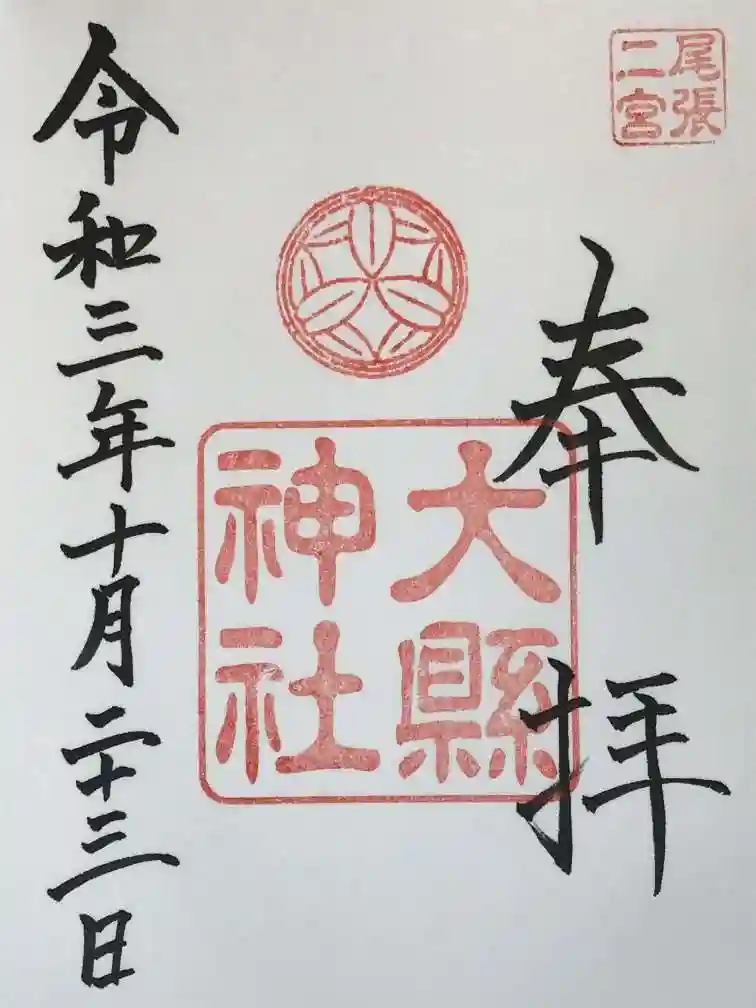 尾張
二宮
奉拝
大縣
神社
令和三年十月二十三日